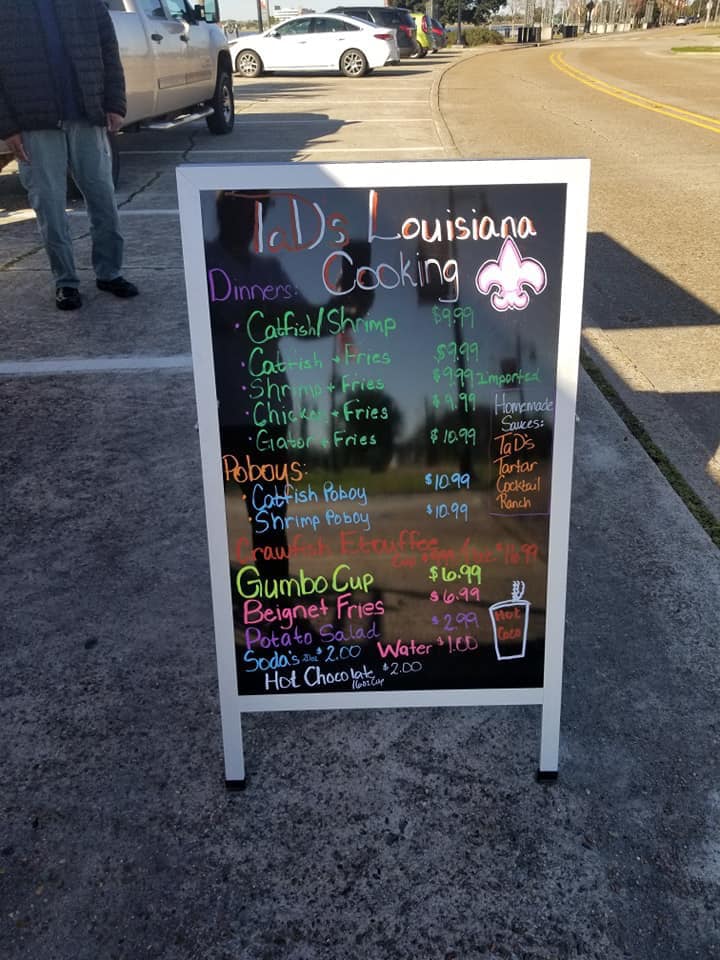 TaD's Louisiana
Cooking
Dinners:
• Catfish/Shrimp $9.99
• Catfish + Fries $9.99
• Shrimp + Fries $9.99 Imported
• Chicken + Fries $9.99
• Gator + Fries $10.99
Homemade
Sauces:
TaD's
Tartar
Cocktail
Ranch
Poboys:
• Catfish Poboy $10.99
• Shrimp Poboy $10.99
Crawfish Etouffee
Gumbo Cup $6.99
Beignet Fries $6.99
Potato Salad $2.99
Soda's 20oz $2.00 Water $1.00
Hot Chocolate $2.00
16oz Cup
Hot
Coco